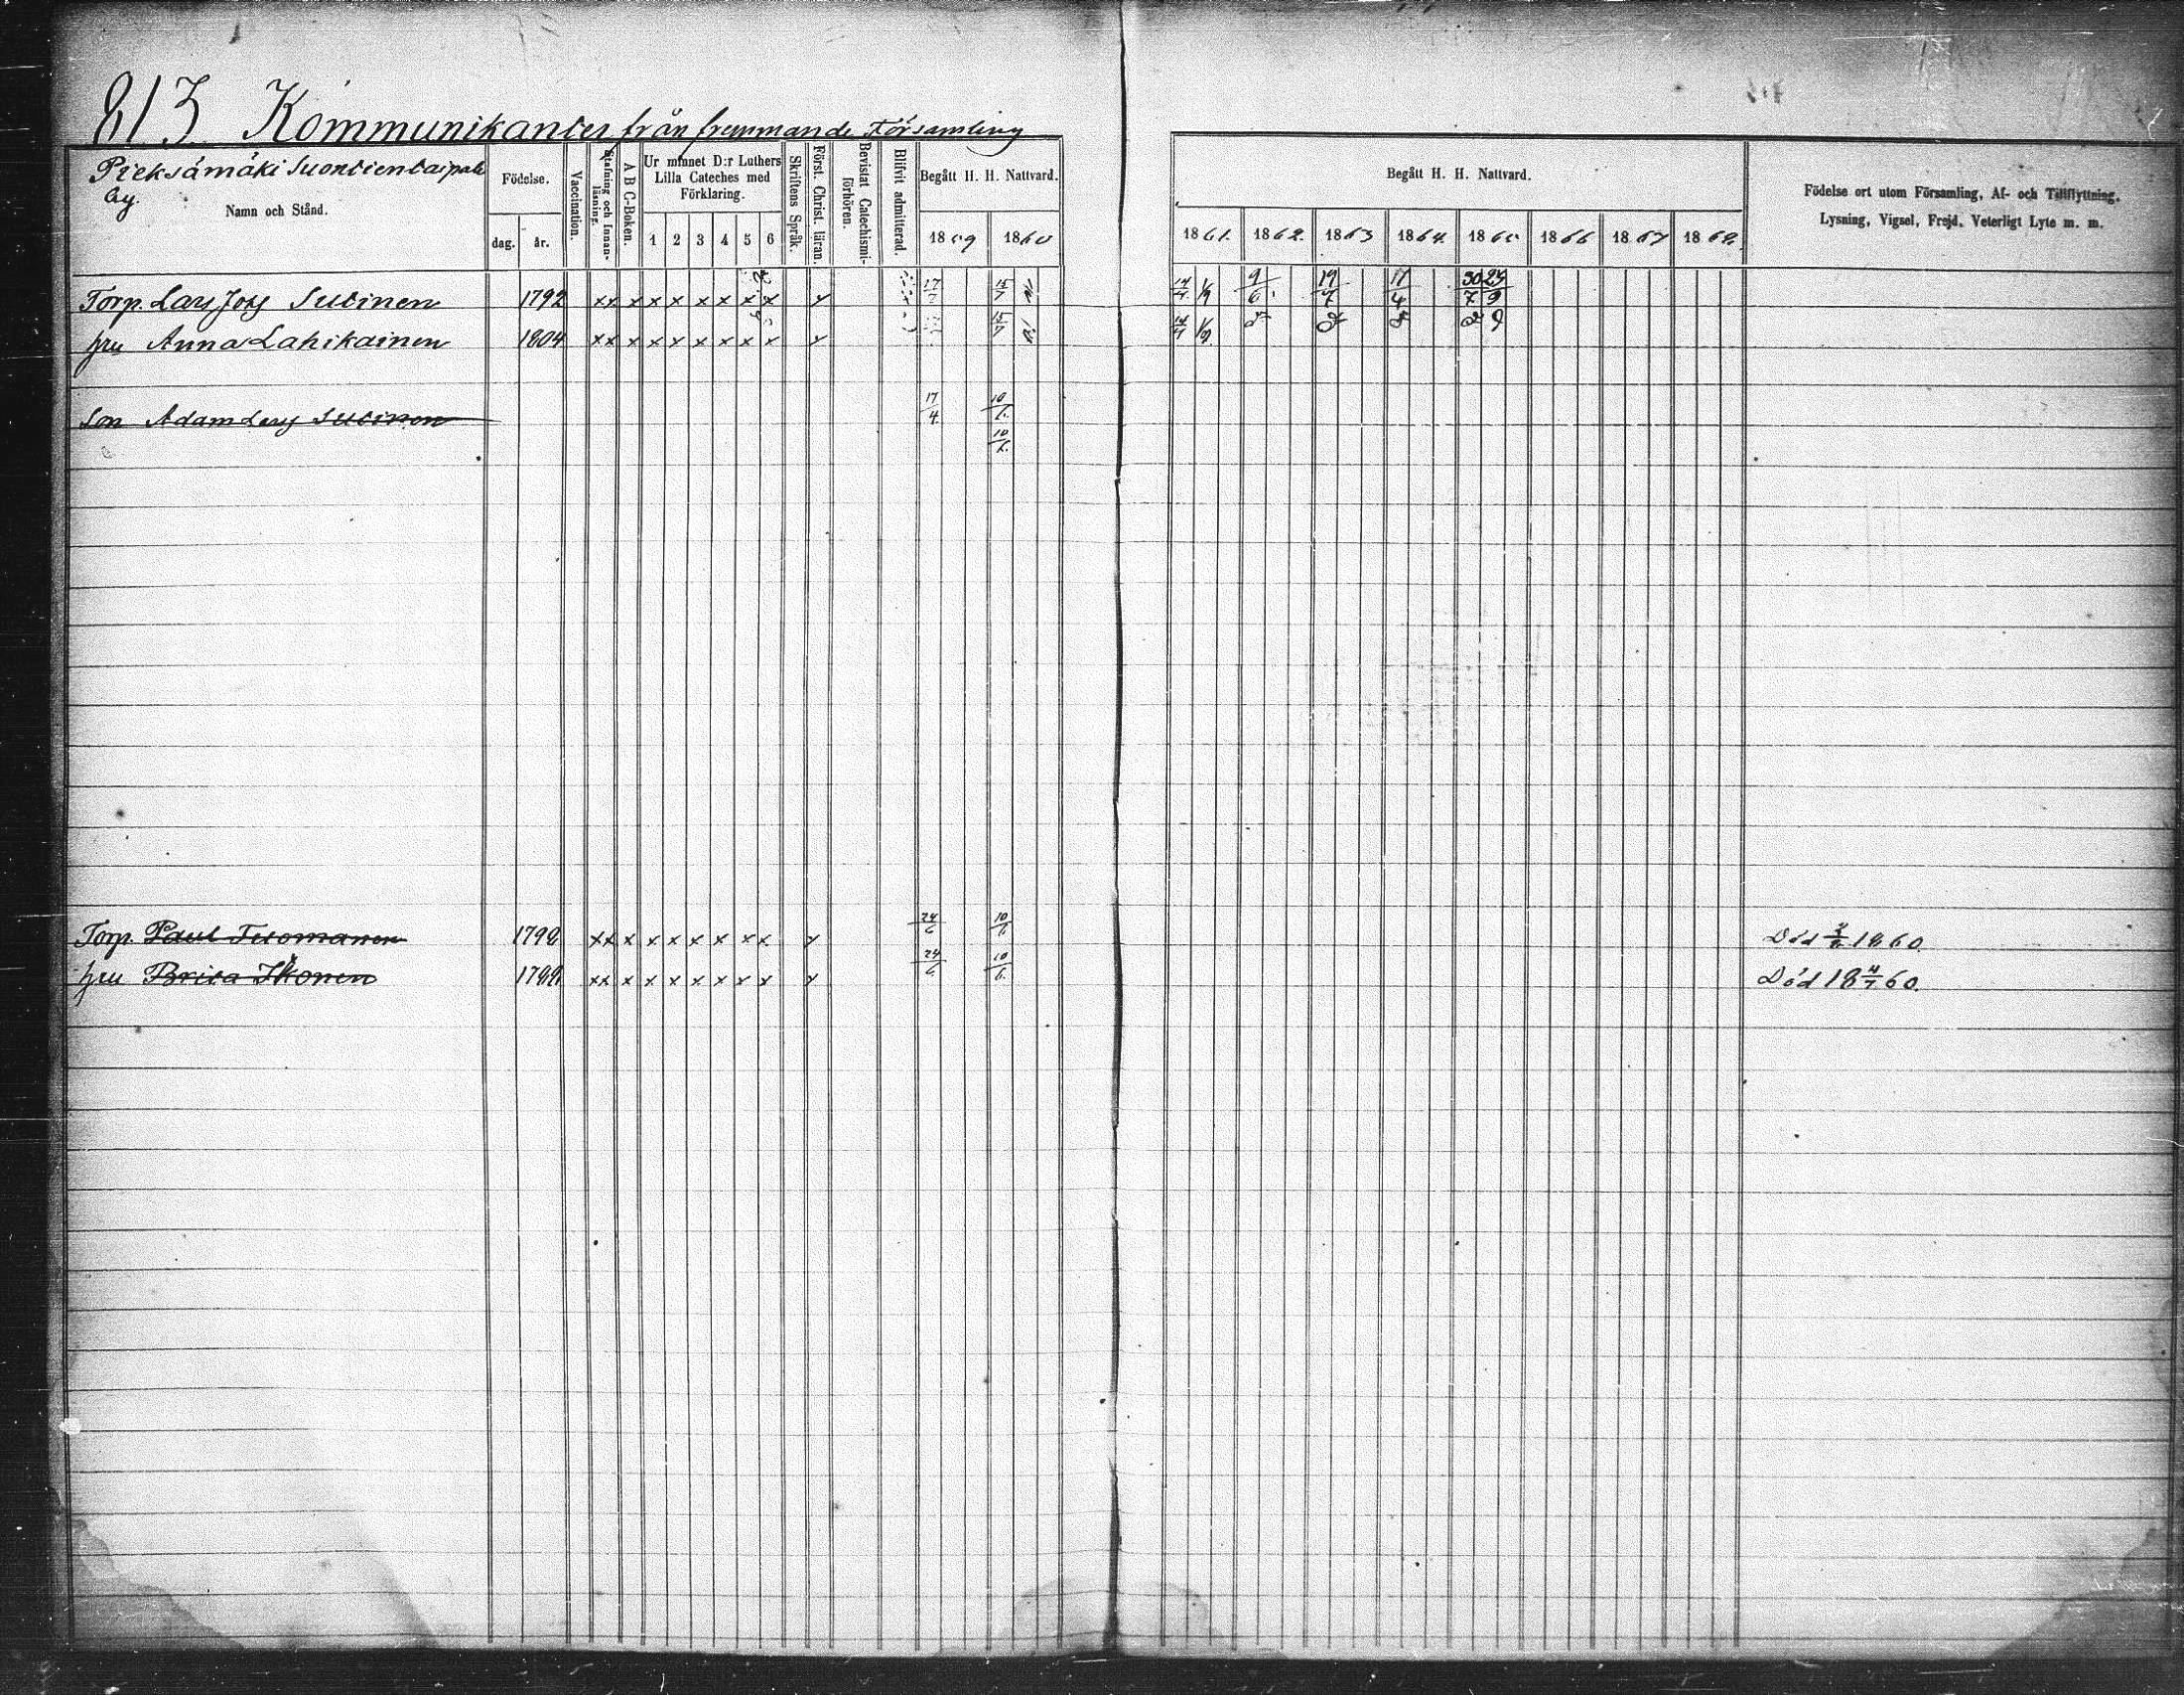 813 Kommunikanter från fremmande Församling
Pieksämäki Suontientaipale
by.
Namn och Stånd.
Födelse.
dag. år.
Vaccination.
Stafning och Innanläsning.
A B C-Boken.
Ur minnet D:r Luthers
Lilla Cateches med
Förklaring.
1 2 3 4 5 6
Skriftens Språk.
Först. Christ. läran.
Bevistat Catechismi-
förhören.
Blifvit admitterad.
Begått H. H. Nattvard.
1859 1860
Begått H. H. Nattvard.
1861. 1862. 1863 1864. 1865 1866 1867 1868.
Födelse ort utom Församling, Af- och Tillflyttning,
Lysning, Vigsel, Frejd, Veterligt Lyte m. m.
Torp. Lars Joh Sutinen 1792 xx x x x x x x x x 17/7 15/7 14/4 1/9 9/6 19/7 17/4 30/7 24/9
hru Anna Lahikainen 1804 xx x x x x x x x x 15/7 14/4 1/9
Son Adam Lars Sutinen 17/4 10/6.
10/6.
Torp. Paul Tuomanen 1798 xx x x x x x x x x 24/6 10/6 Död 1860
hru Brita Ikonen xx x x x x x x x x 24/6 10/6. Död 18 4/7 60.